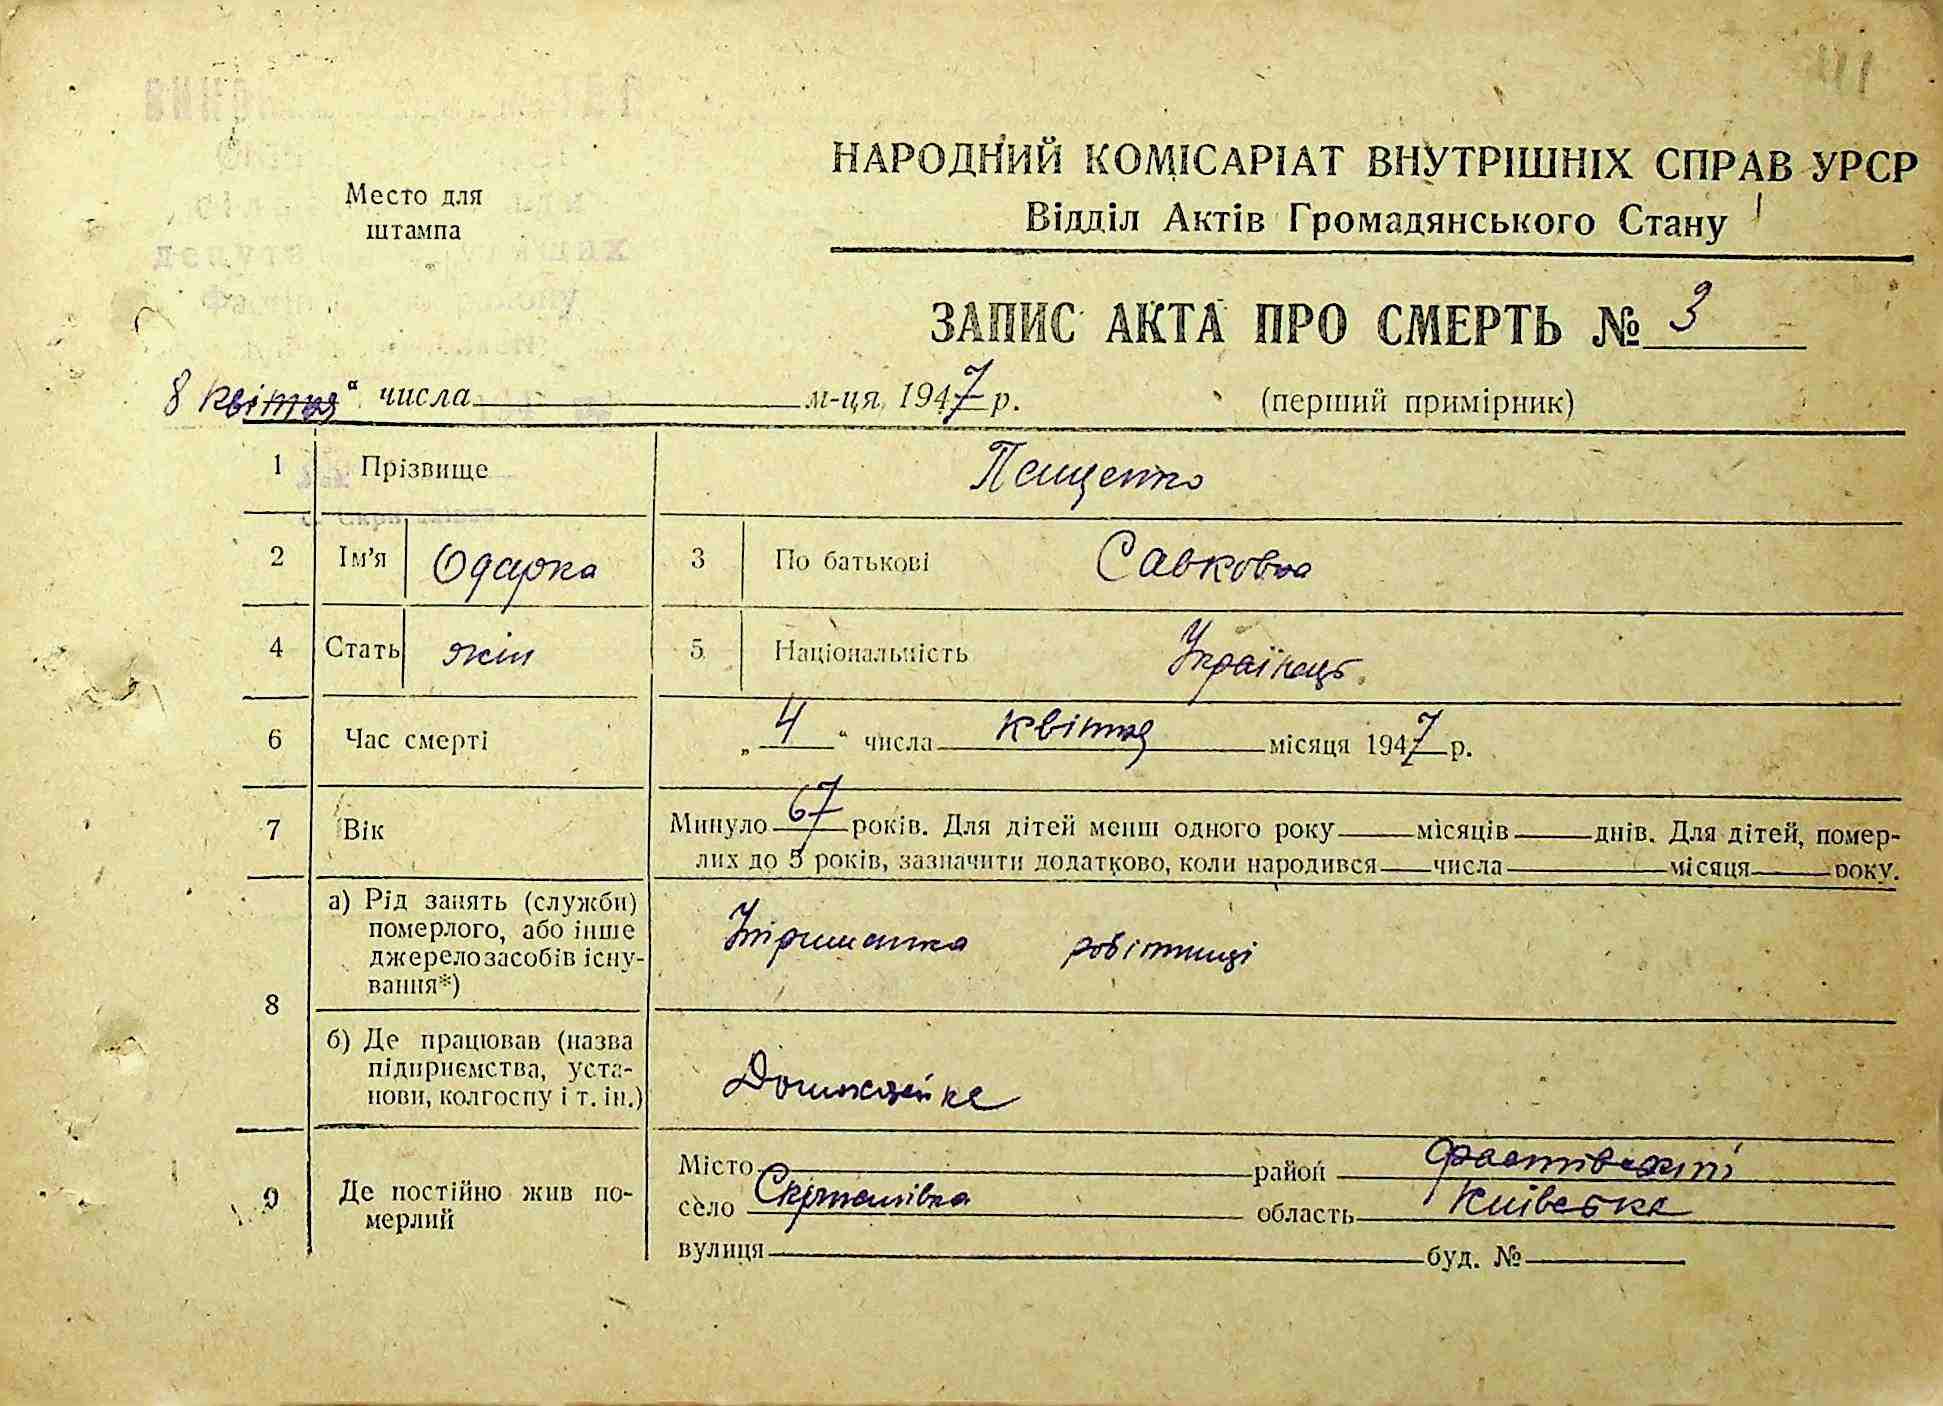 Место для
штампа
НАРОДНИЙ КОМІСАРІАТ ВНУТРІШНІХ СПРАВ УРСР
Відділ Актів Громадянського Стану
ЗАПИС АКТА ПРО СМЕРТЬ № 3
8 квітня“ числа м-ця 1947 р. (перший примірник)
1 Прізвище Пащенко
2 Ім'я Одарка 3 По батькові Савковна
4 Стать жін 5 Національність Українець
6 Час смерті „4“ числа квітня місяця 1947 р.
7 Вік Минуло 67 років. Для дітей менш одного року місяців днів. Для дітей, помер-
лих до 5 років, зазначити додатково, коли народився числа місяця року.
8 а) Рід занять (служби)
померлого, або інше
джерело засобів існу-
вання*)
Утриманка робітниці
б) Де працював (назва
підприємства, уста-
нови, колгоспу і т. ін.)
9 Де постійно жив по-
мерлий
Місто район Фастівський
село область Київська
вулиця буд. №